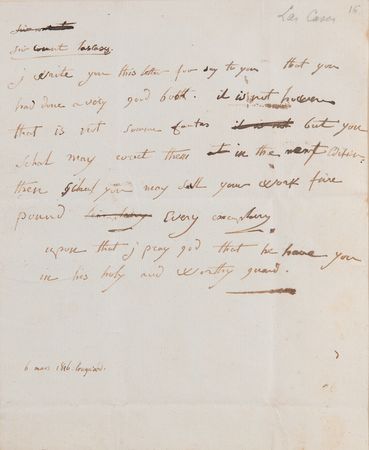 Las Cases
16
sir count lascasas.
j write you this letter for say to you that you
had done a very good book. it is not however
that is not some faultes it is not but you
schal may corect them it in the next edition
then schal you may sell your work five
pound every exemplary
upon that j pray god that he have you
in his holy and worthy guard.
6 mars 1816. longwood.